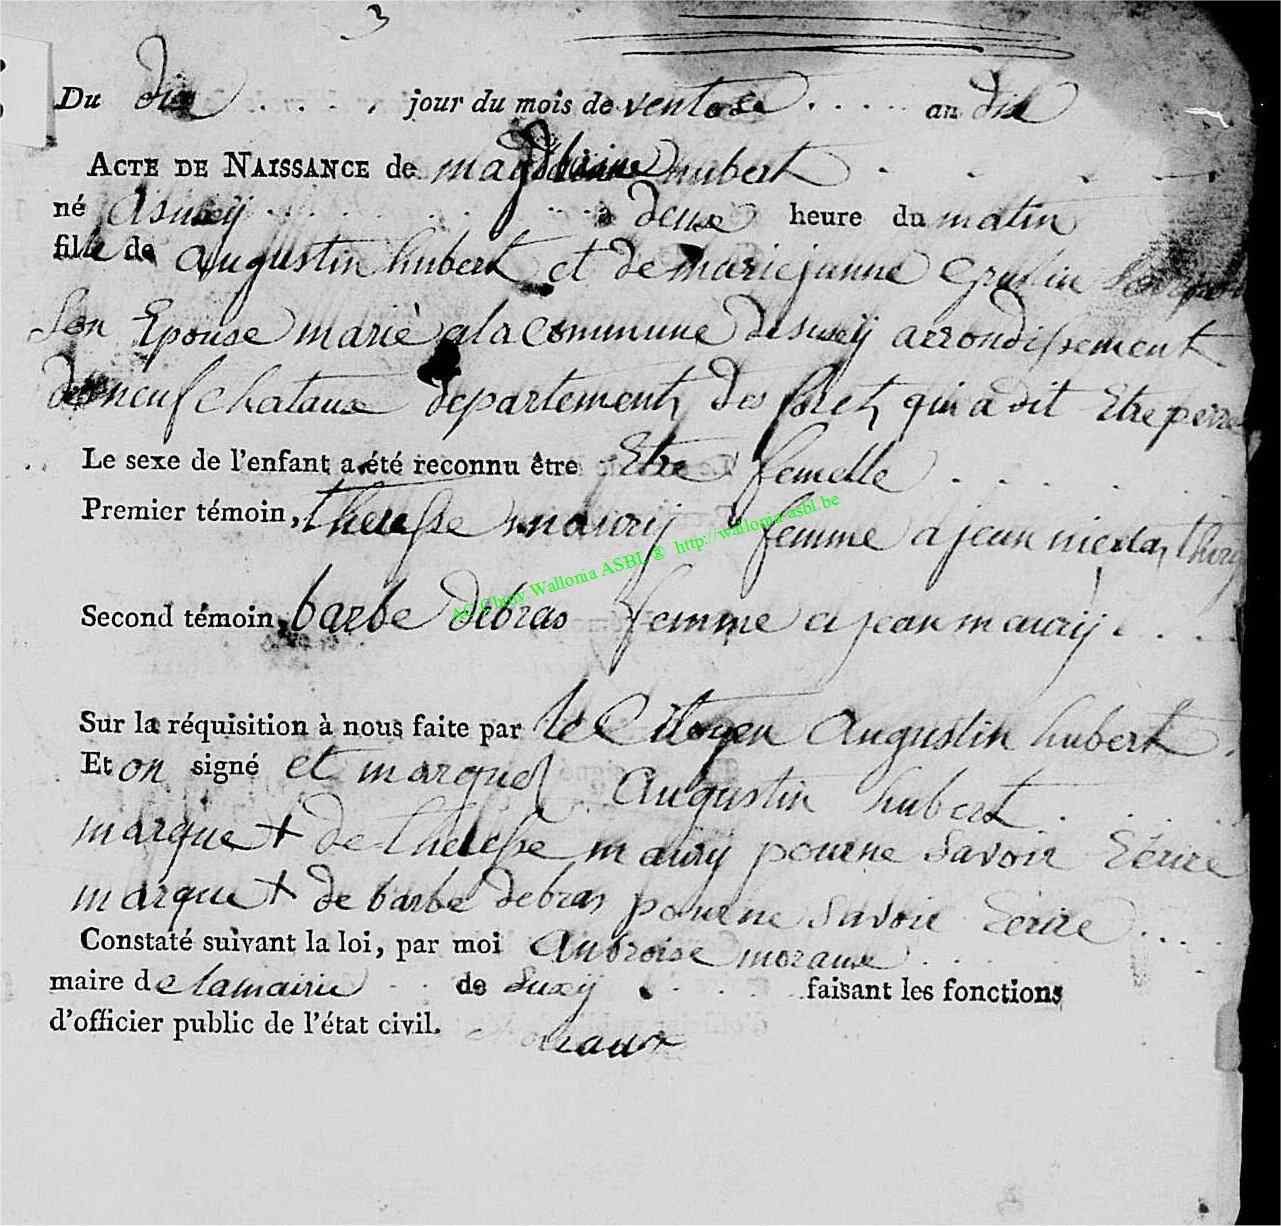 3
Du dix . . . . . jour du mois de ventose . . . . . an dix
ACTE DE NAISSANCE de magdlaine hubert
né asuxÿ . . . . . . . a deux heure du matin
fille de augustin hubert et de marie janne
Son Epouse marié a la commune de suxÿ arrondissement
de neufchataux departement des foret qui a dit Etre perre
Le sexe de l'enfant a été reconnu être Etre femelle . . . .
Premier témoin, theresse maurÿ femme a jean nicolas thirÿ
AC Chiny Wallonia ASBL @ http://wallonia-asbl.be
Second témoin, barbe debras femme a jean maurÿ . . .
Sur la réquisition à nous faite par le Citoyen augustin hubert .
Et on signé et marque augustin hubert . . . .
marque + de theresse maurÿ pour ne savoir Ecrire
marque + de barbe debras pour ne savoir Ecrire . . . .
Constaté suivant la loi, par moi anbroise moraux . . .
maire de la mairie . . de Suxÿ . . . . faisant les fonctions
d'officier public de l'état civil. moraux